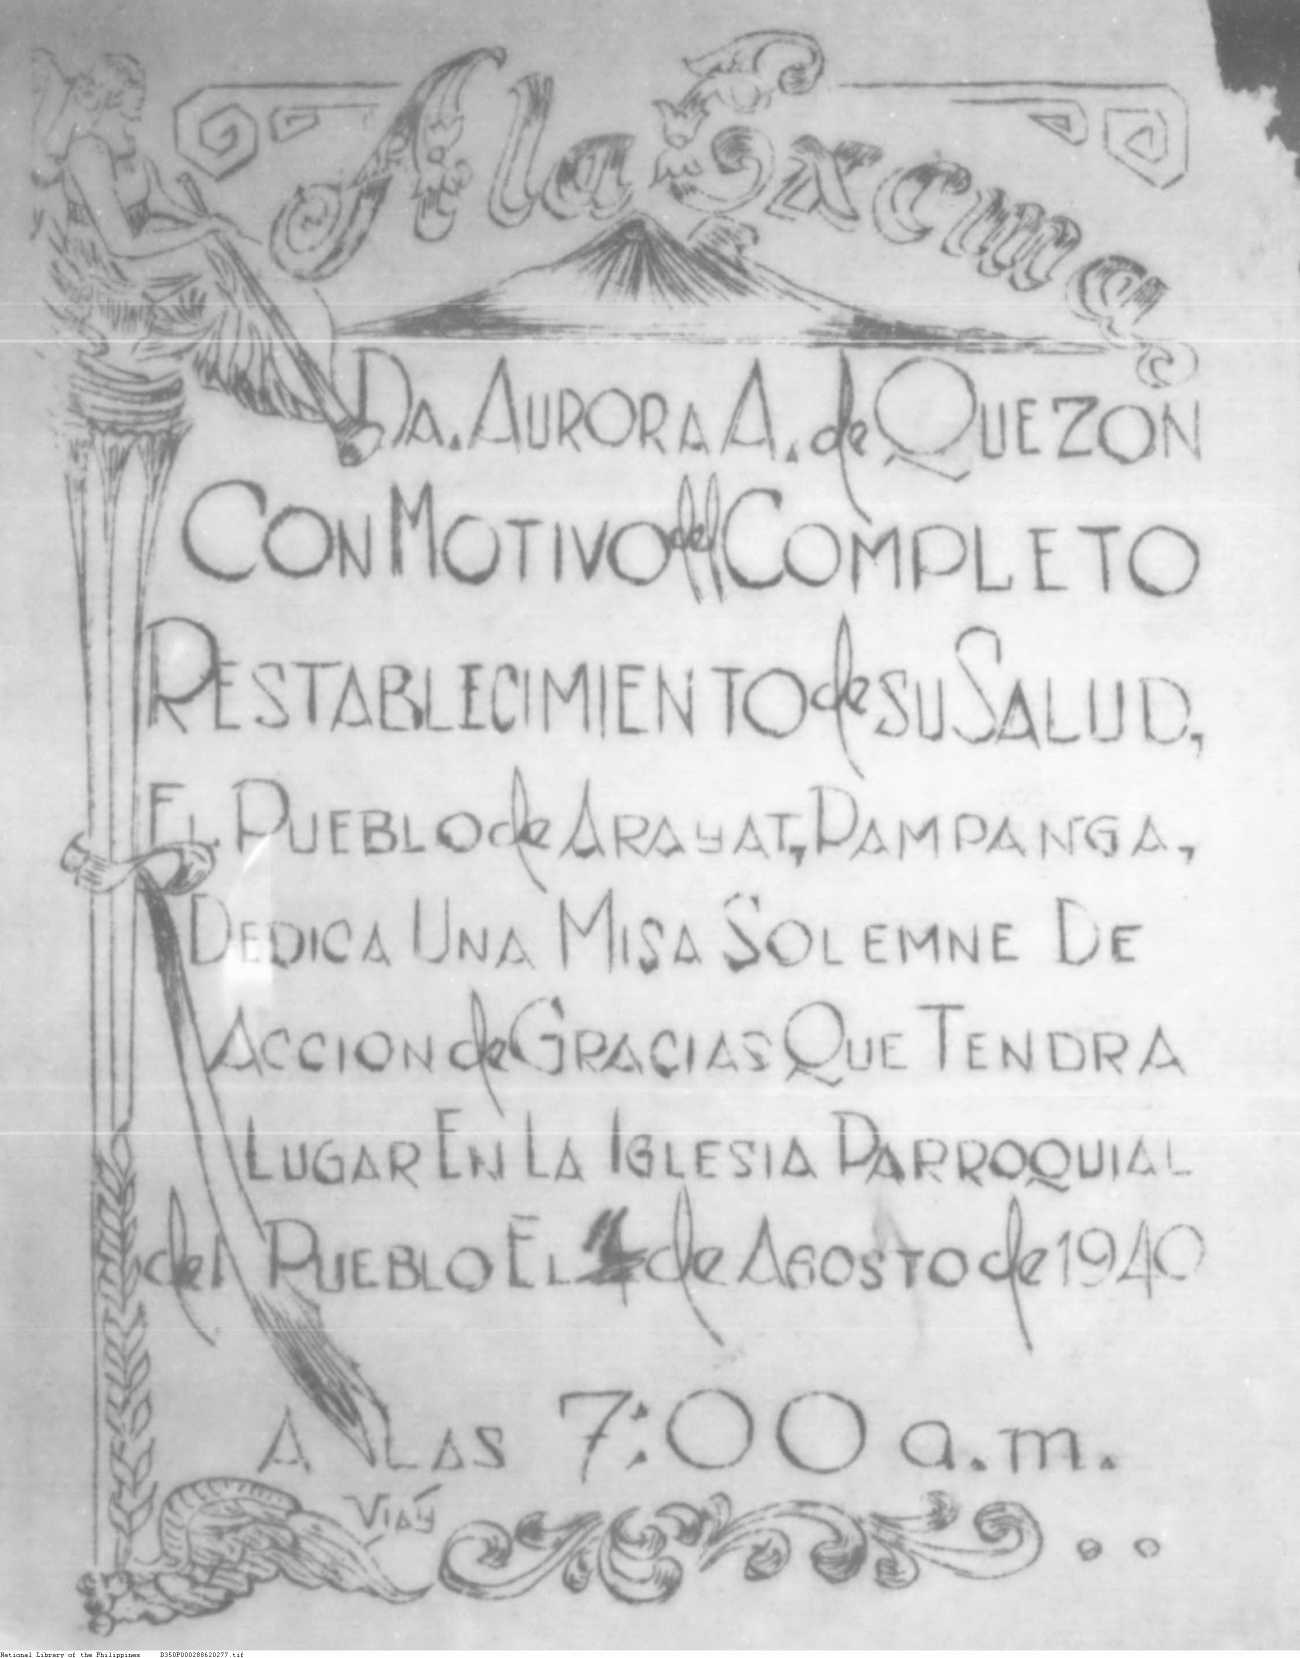 A la Excma.
DA. AURORA A. de QUEZON
CON MOTIVO del COMPLETO
RESTABLECIMIENTO de SU SALUD,
EL PUEBLO de ARAYAT, PAMPANGA,
DEDICA UNA MISA SOLEMNE DE
ACCION de GRACIAS QUE TENDRA
LUGAR EN LA IGLESIA PARROQUIAL
del PUEBLO EL de AGOSTO de 1940
A LAS 7:00 a.m.
National Library of the Philippines D350P000288620277.tif